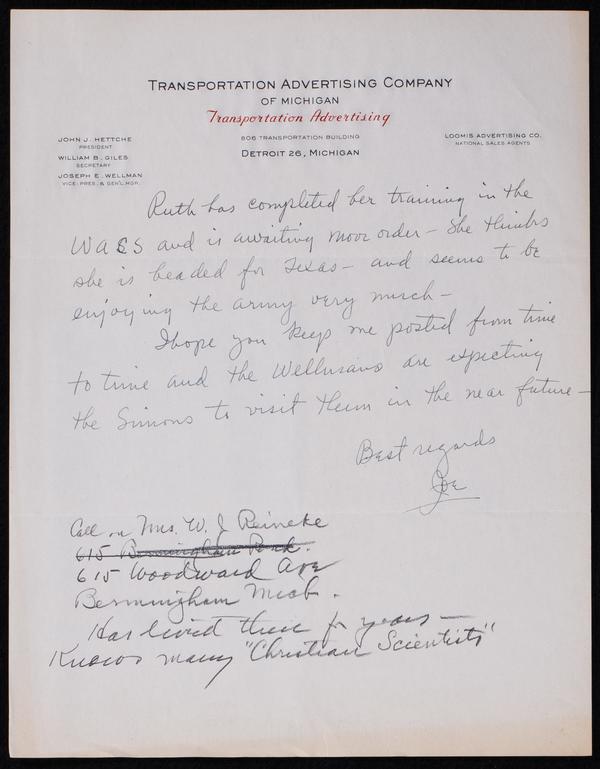 TRANSPORTATION ADVERTISING COMPANY
OF MICHIGAN
Transportation Advertising
806 TRANSPORTATION BUILDING
DETROIT 26, MICHIGAN
JOHN J. HETTCHE
PRESIDENT
WILLIAM B. GILES
SECRETARY
JOSEPH E. WELLMAN
VICE-PRES. & GEN'L MGR.
LOOMIS ADVERTISING CO.
NATIONAL SALES AGENTS
Ruth has completed her training in the
WACS and is awaiting move order - She thinks
she is headed for Texas - and seems to be
enjoying the army very much -
I hope you keep me posted from time
to time and the Wellmans are expecting
the Simons to visit them in the near future -
Best regards
Joe
Call on Mrs. W. J Reineke
615 Birmingham Park.
615 Woodward Ave
Bermingham Mich.
Has lived there for years -
Knows many "Christian Scientists"